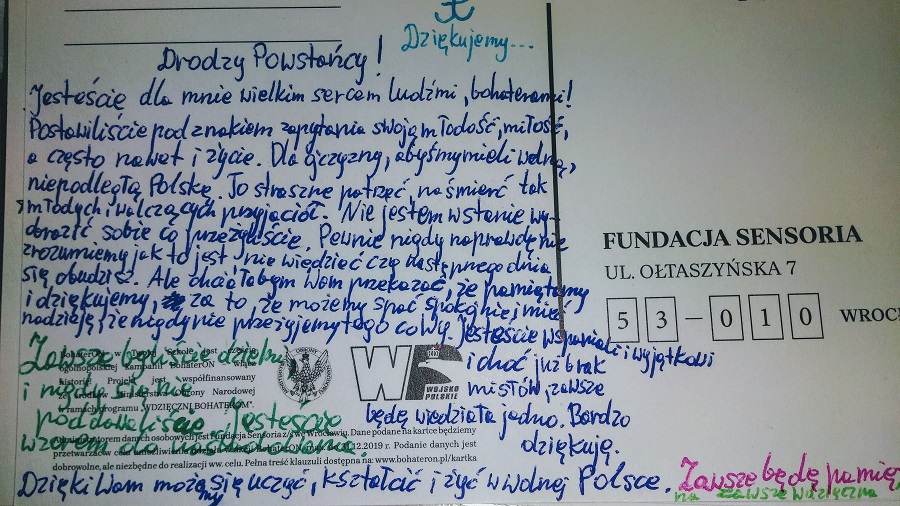 Dziękujemy...
Drodzy Powstańcy!
Jesteście dla mnie wielkim sercem ludźmi, bohaterami!
Postawiliście pod znakiem zapytania swoją młodość, miłość,
a często nawet i życie. Dla ojczyzny, abyśmy mieli wolną,
niepodległą Polskę. To straszne patrzeć, na śmierć tak
młodych i walczących przyjaciół. Nie jestem w stanie wy-
obrazić sobie co przeżyliście. Pewnie nigdy naprawdę nie
zrozumiemy jak to jest nie wiedzieć czy następnego dnia
się obudzisz. Ale chciałabym Wam przekazać, że pamiętamy
i dziękujemy, za to, że możemy spać spokojnie i mieć
nadzieję, że nigdy nie przeżyjemy tego co Wy. Jesteście wspaniali i wyjątkowi
i choć już brak
mi słów, zawsze
będę wiedziała jedno. Bardzo
dziękuję.
Zawsze byliście dzielni
i nigdy się nie
poddawaliście. Jesteście
do naśladowania.
Dzięki Wam możemy się uczyć, kształcić i żyć w wolnej Polsce.
Zawsze będę pamię
na zawsze wdzięczna
FUNDACJA SENSORIA
UL. OŁTASZYŃSKA 7
53-010 WROC
WOJSKO
POLSKIE
ogólnopolskiej kampanii BohaterON
Projekt jest współfinansowany
Ministerstwa Obrony Narodowej
w ramach programu "WDZIĘCZNI BOHATEROM".
danych osobowych jest Fundacja Sensoria z/s we Wrocławiu. Dane podane na kartce będziemy
12.2019 r. Podanie danych jest
dobrowolne, ale niezbędne do realizacji ww. celu. Pełna treść klauzuli dostępna na: www.bohateron.pl/kartka